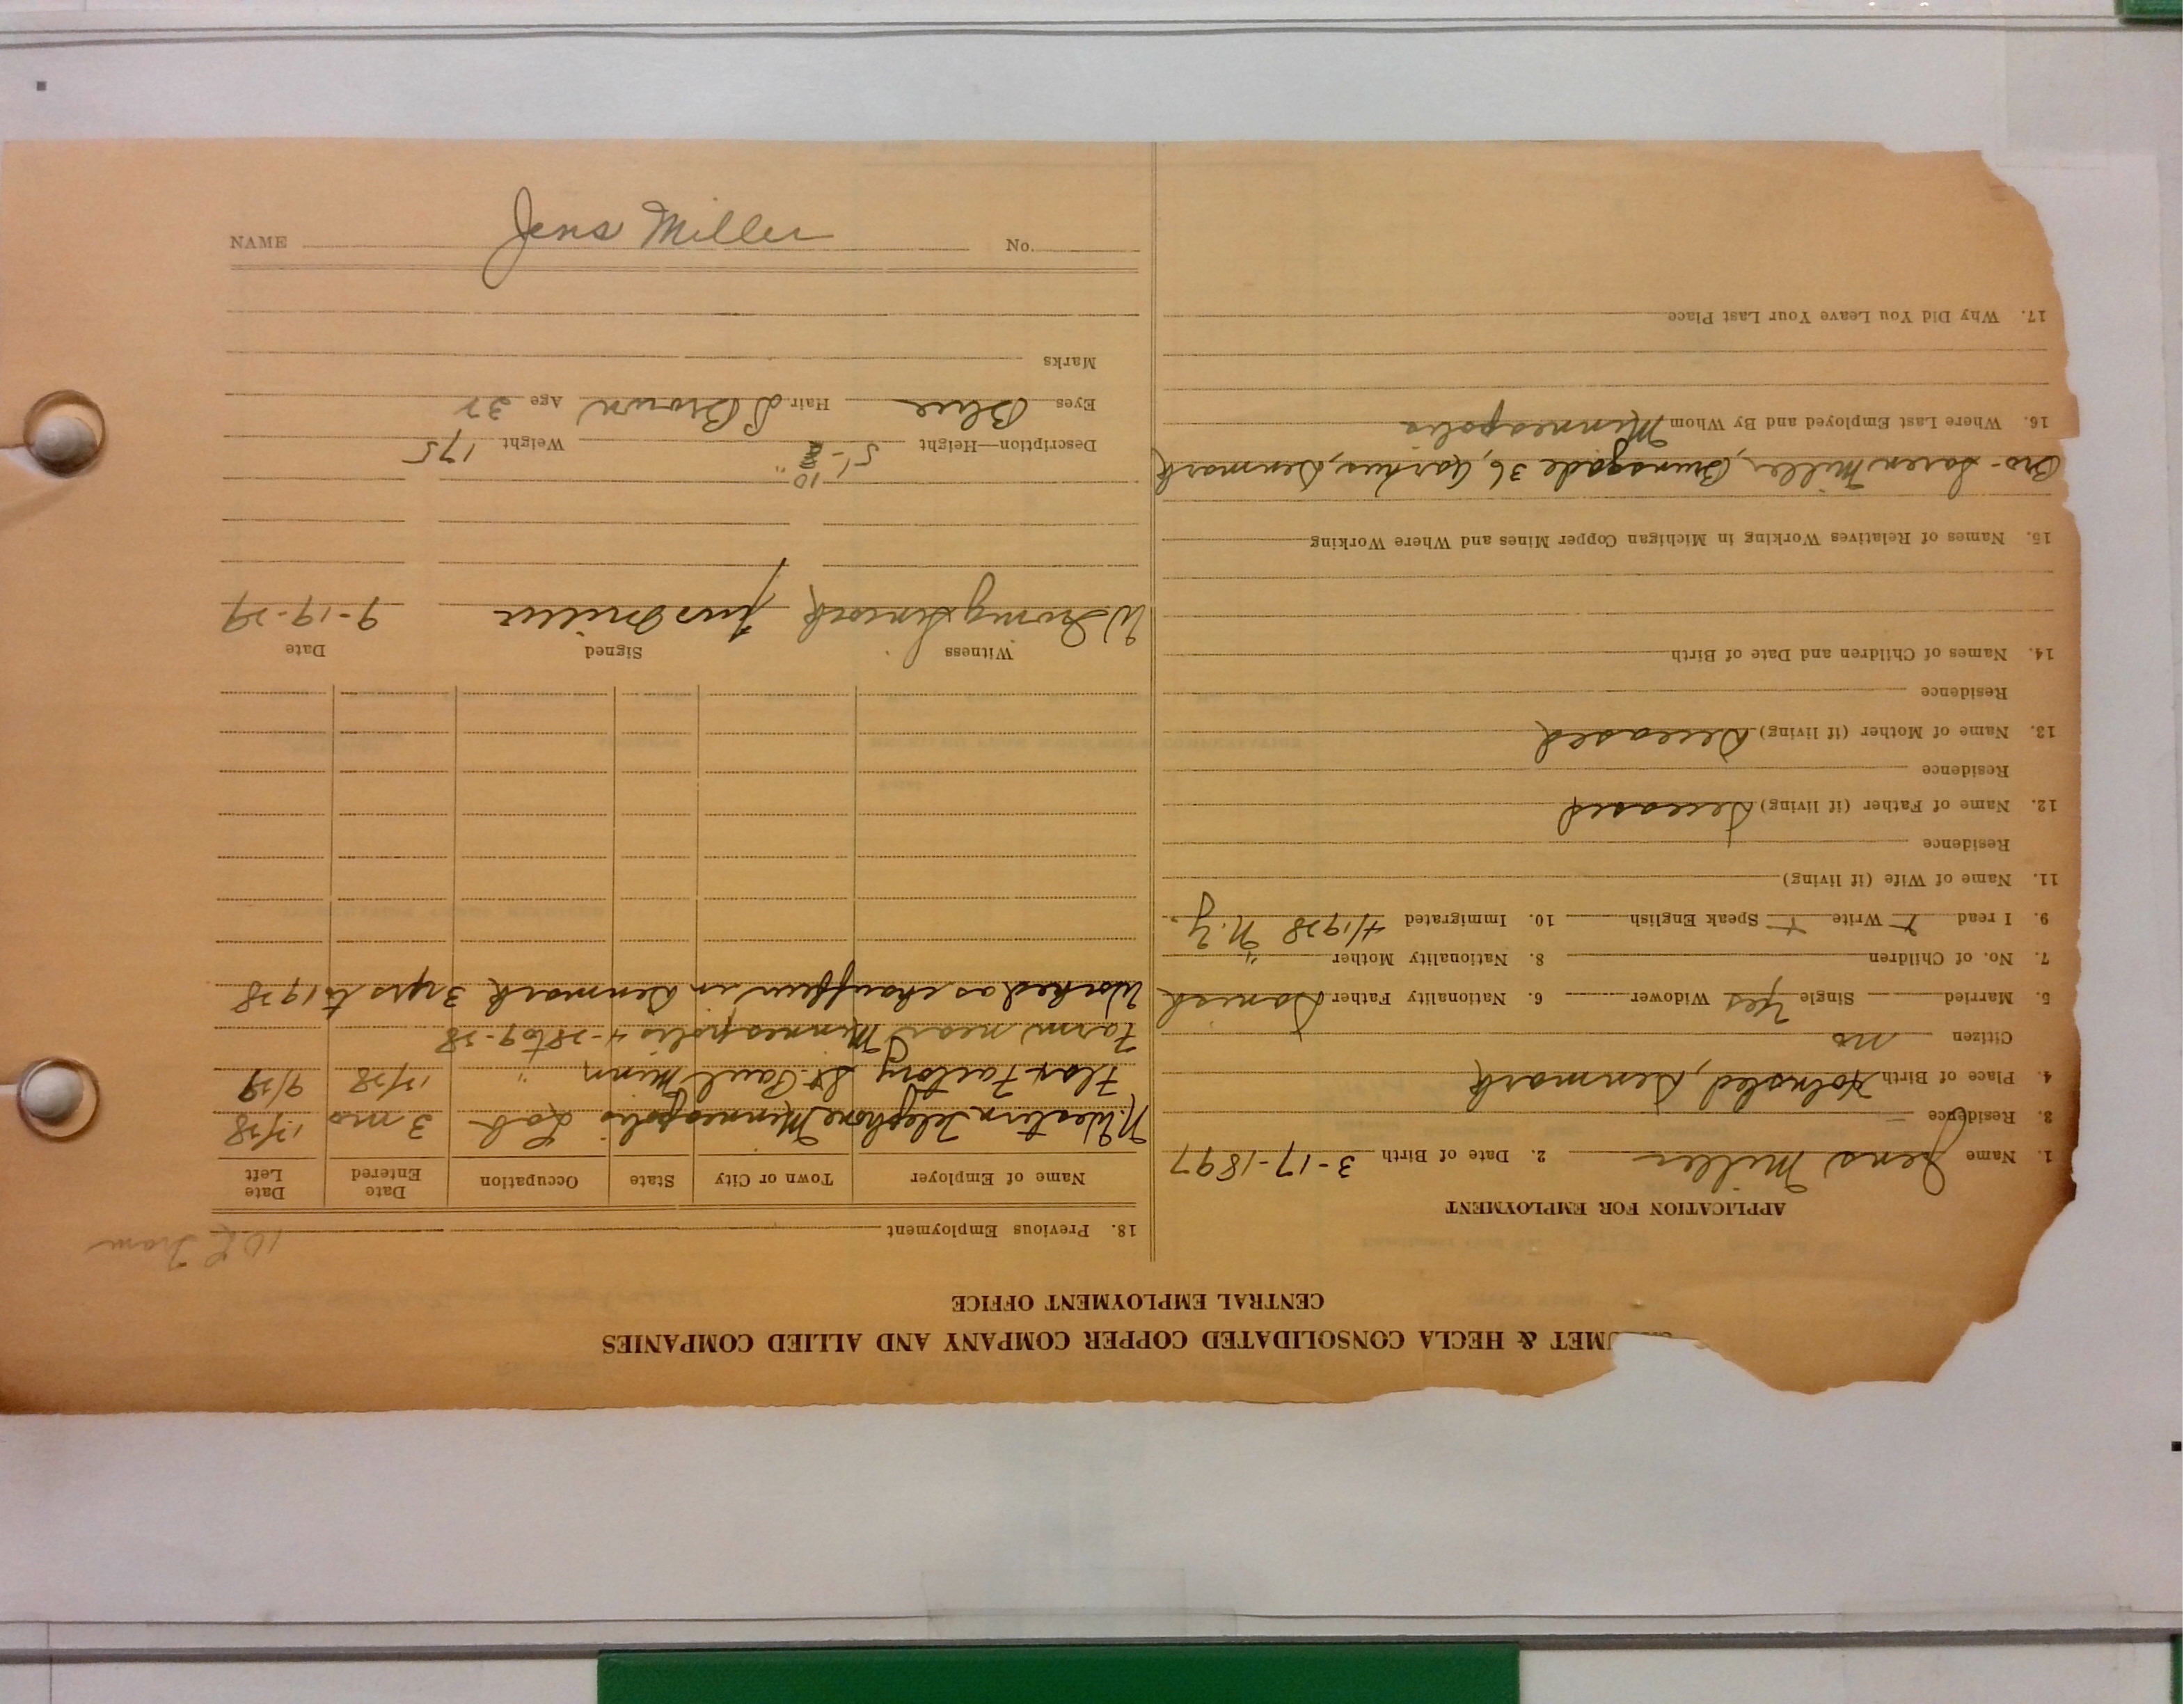 UMET & HECLA CONSOLIDATED COPPER COMPANY AND ALLIED COMPANIES
CENTRAL EMPLOYMENT OFFICE
APPLICATION FOR EMPLOYMENT
1. Name Jens Miller 2. Date of Birth 3-17-1897
3. Residence
4. Place of Birth Denmark
Citizen no
5. Married Single Yes Widower 6. Nationality Father Danish
7. No. of Children 8. Nationality Mother "
9. I read + Write + Speak English 10. Immigrated 4/1928 N.Y.
11. Name of Wife (if living)
Residence
12. Name of Father (if living) Deceased
Residence
13. Name of Mother (if living) Deceased
Residence
14. Names of Children and Date of Birth
15. Names of Relatives Working in Michigan Copper Mines and Where Working
Bro- Soren Miller, 36, Aarhus, Denmark
16. Where Last Employed and By Whom Minneapolis
17. Why Did You Leave Your Last Place
10 Tram
18. Previous Employment
Name of Employer Town or City State Occupation Date Entered Date Left
N. Western Telephone Minneapolis Lab 3 mos 12/28
Flax Factory St. Paul Minn " 12/28 9/29
Farm near Minneapolis 4-28 to 9-28
Worked as chauffeur in Denmark 3 yrs to 1928
Witness Signed Date
Jens Miller 9-19-29
Description—Height 5'-10" Weight 175
Eyes Blue Hair D Brown Age 32
Marks
NAME Jens Miller No.